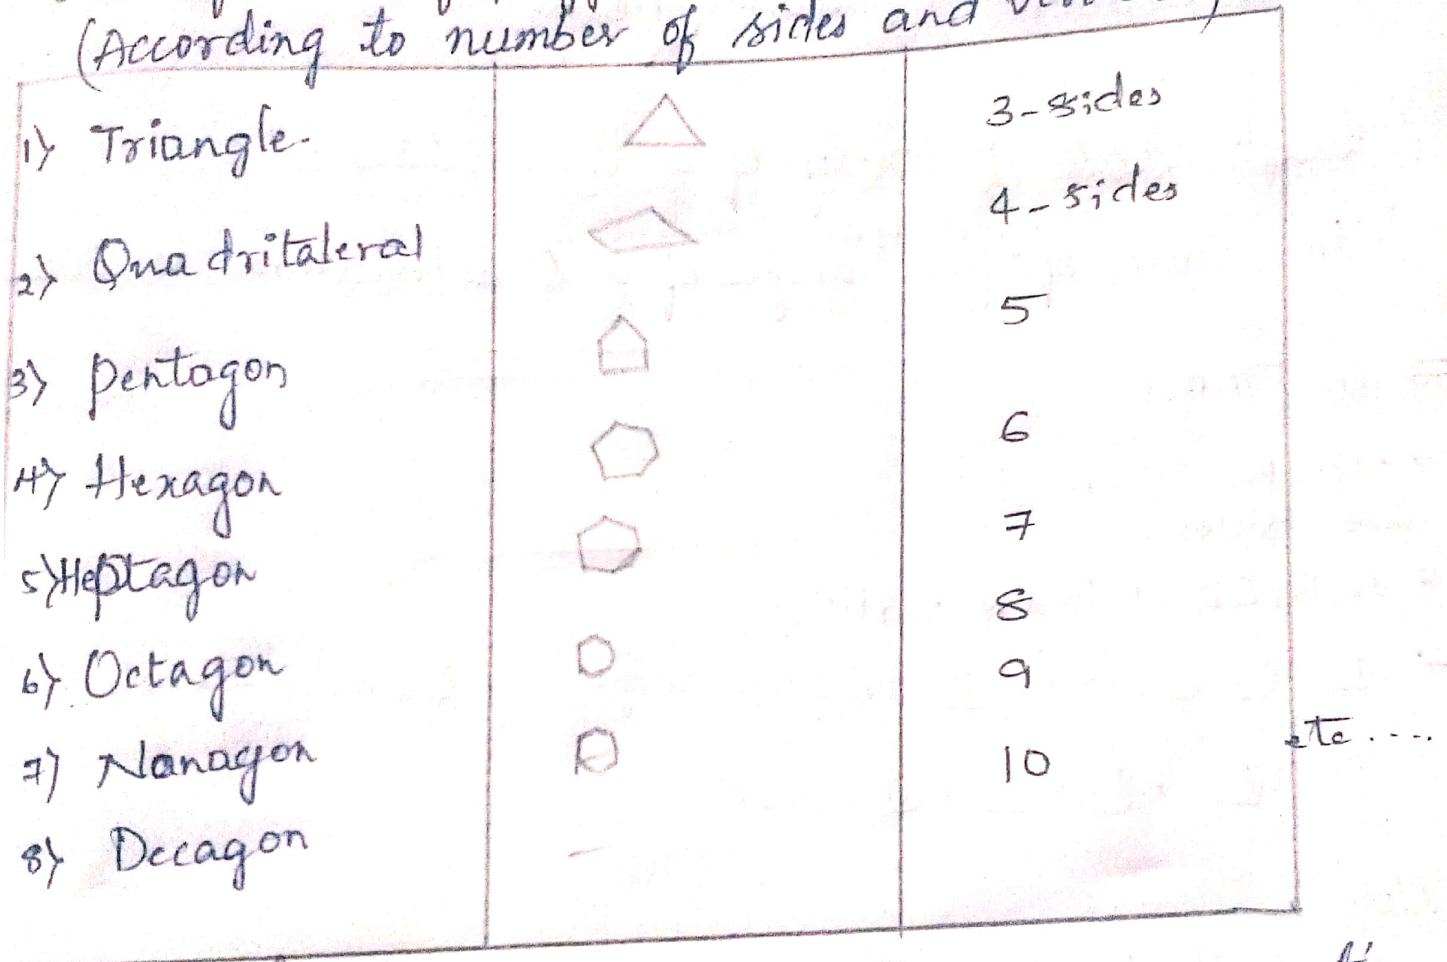 (According to number of sides and
1) Triangle. 3-sides
2) Quadritaleral 4-sides
3) Pentagon 5
4) Hexagon 6
5) Heptagon 7
6) Octagon 8
7) Nanagon 9
8) Decagon 10 etc....